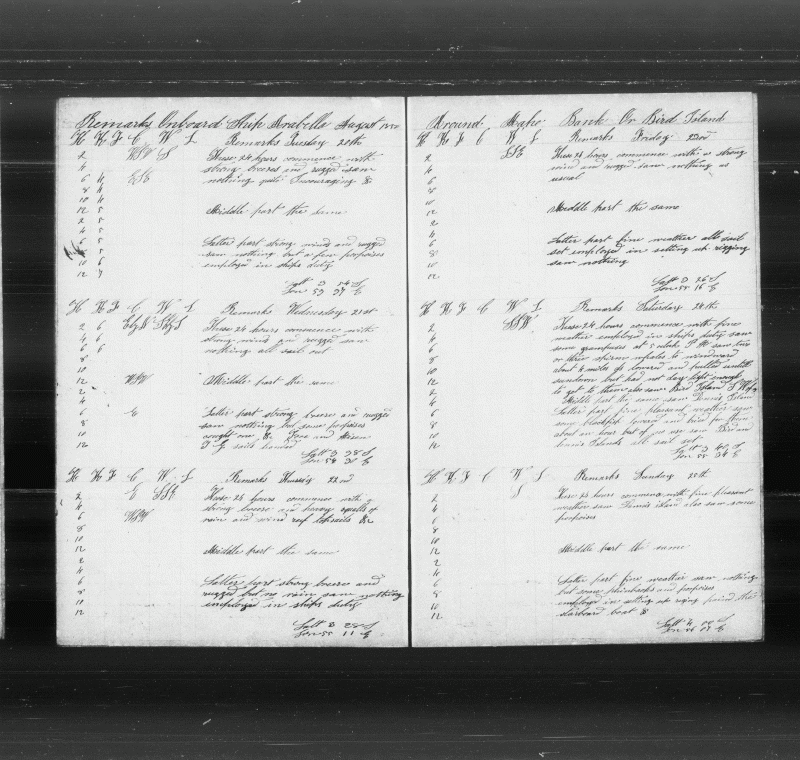 Remarks Onboard Ship Arabella August
H K F C W L Remarks Tuesday 20th
2 WSW S These 24 hours commence with
4 strong breezes and rugged saw
6 4 ESE nothing quite Incouraging &
8 4
10 4
12 5 Middle part the same
2 5
4 5
6 5 Latter part strong wind and rugged
8 5 saw nothing but a few porpoises
10 6 employed in ships duty
12 7
Latt 3 54 S
Lon 53 37 E
H K F C W L Remarks Wednesday 21st
2 6 EbyN SbyE These 24 hours commence with
4 6 strong wind and rugged saw
6 6 nothing all sail out
8
10
12 WSW Middle part the same
2
4
6 E Latter part strong breeze and rugged
8 saw nothing but some porpoises
10 caught one & Fore and Mizen
12 T G sails handed
Latt 3 38 S
Lon 54 30 E
H K F C W L Remarks Thursday 22nd
2 E SSE These 24 hours commence with
4 strong breeze and heavy squalls of
6 WSW rain and wind reef topsails &c
8
10
12 Middle part the same
2
4
6 Latter part strong breeze and
8 rugged but no rain saw nothing
10 employed in ships duty
12
Latt 3 28 S
Lon 55 11 E
Around Mahe Bank Or Bird Island
H K F C W L Remarks Friday 23rd
2 SSE These 24 hours commence with a strong
4 wind and rugged saw nothing as
6 usual
8
10
12 Middle part the same
2
4
6 Latter part fine weather all sail
8 set employed in setting up rigging
10 saw nothing
12
Latt 3 26 S
Lon 55 16 E
H K F C W L Remarks Saturday 24th
2 SSW These 24 hours commence with fine
4 weather employed in ships duty saw
6 some grampuses at 5 oclock P M saw two
8 or three sperm whales to windward
10 about 4 miles of lowered and pulled untill
12 sundown but had not day light enough
2 to get to them also saw Bird Island
4 Middle part the same saw Dennis Island
6 Latter part fine pleasant weather saw
8 some blackfish lowered and tried for them
10 about an hour but of no use saw Bird and
12 Dennis Islands all sail set
Latt 3 40 S
Lon 55 34 E
H K F C W L Remarks Sunday 25th
2 S These 24 hours commence with fine pleasant
4 weather saw Dennis island also saw some
6 porpoises
8
10
12 Middle part the same
2
4
6 Latter part fine weather saw nothing
8 but some finbacks and porpoises
10 employed in setting up riging paint the
12 starboard boat &
Latt 4 S
Lon E